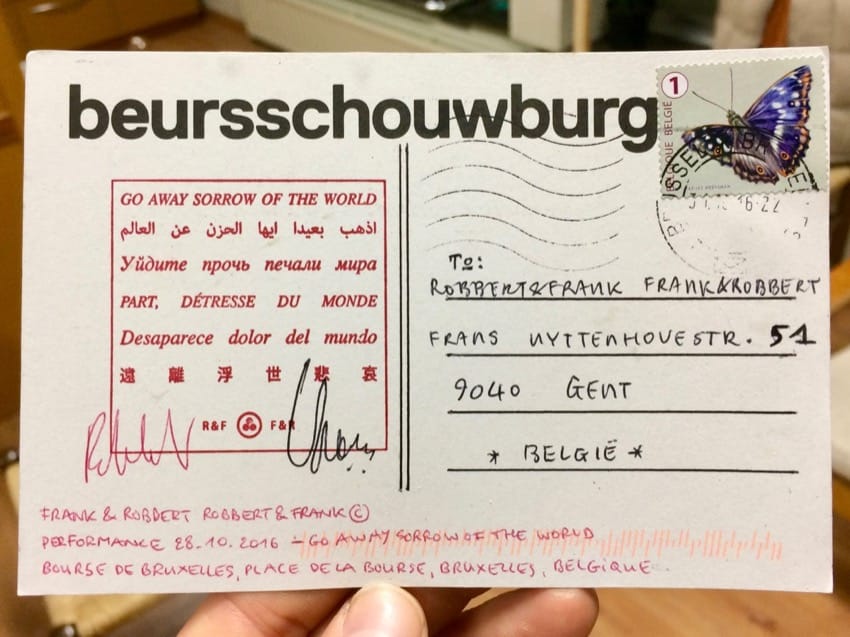 beursschouwburg
1
BELGIQUE BELGIË
GO AWAY SORROW OF THE WORLD
اذهب بعيدا ايها الحزن عن العالم
Уйдите прочь печали мира
PART, DÉTRESSE DU MONDE
Desaparece dolor del mundo
遠離浮世悲哀
R&F F&R
To:
ROBBERT&FRANK FRANK&ROBBERT
FRANS UYTTENHOVESTR. 51
9040 GENT
* BELGIË *
FRANK & ROBBERT ROBBERT & FRANK ©
PERFORMANCE 28.10.2016 – GO AWAY SORROW OF THE WORLD
BOURSE DE BRUXELLES, PLACE DE LA BOURSE, BRUXELLES, BELGIQUE